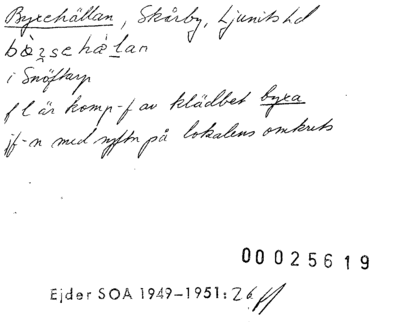 Byxehällan, Skårby, Ljunits hd
i Snöftarp
f l är komp-f av klädbet byxa
jf-n med syftn på lokalens omkrets
00025619
Ejder SOA 1949–1951: 26